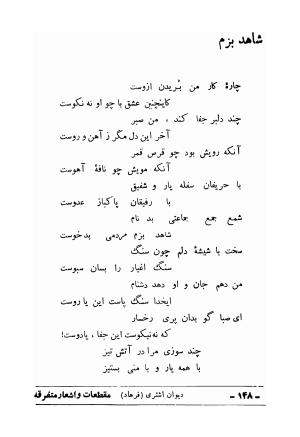 شاهد بزم
چارهٔ کار من بُریدن ازوست
کاینچنین عشق با چو او نه نکوست
چند دلبر جفا کند ، من صبر
آخر این دل مگر ز آهن و روست
آنکه رویش بود چو قرص قمر
آنکه مویش چو نافهٔ آهوست
با حریفان سفله یار و شفیق
با رفیقان پاکباز عدوست
شمع جمع جماعتی بد نام
شاهد بزم مردمی بدخوست
سخت با شیشهٔ دلم چون سنگ
سنگ اغیار را بسان سبوست
من دهم جان و او دهد دشنام
ایخدا سنگ پاست این یا روست
ای صبا گو بدان پری رخسار
که نه نیکوست این جفا ، یادوست!
چند سوزی مرا در آتش تیز
با همه یار و با منی بستیز
ـ ۱۴۸ ـ دیوان اشتری (فرهاد) مقطعات و اشعار متفرقه